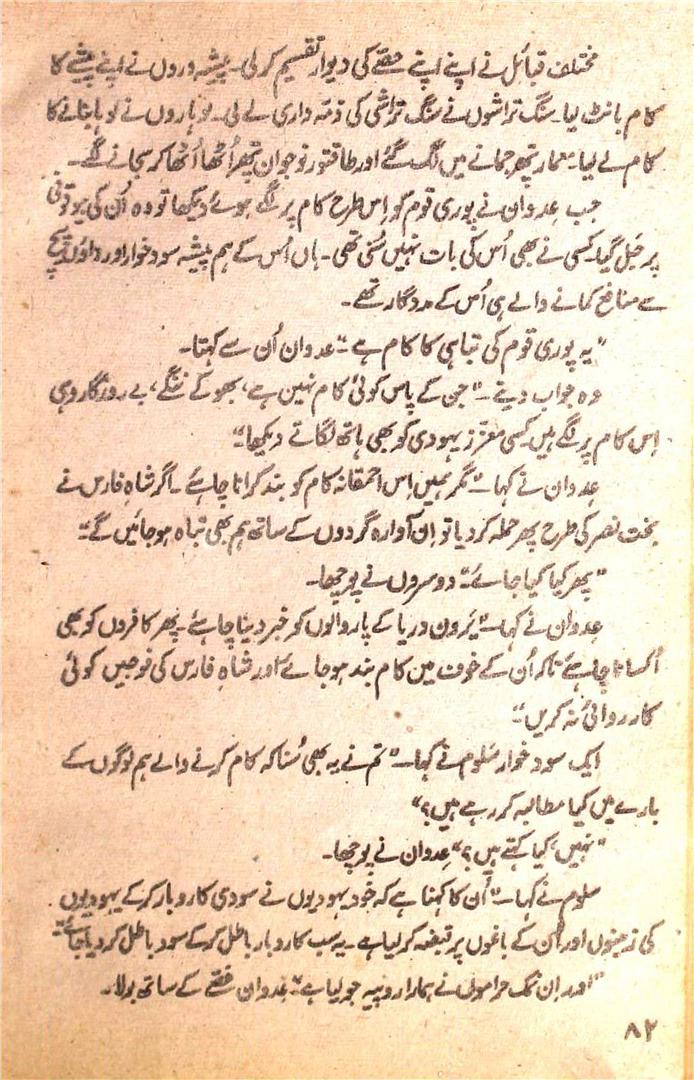 مختلف قبائل نے اپنے اپنے حصے کی دیوار تقسیم کر لی۔ پیشہ وروں نے اپنے پیشے کا
کام بانٹ لیا۔ سنگ تراشوں نے سنگ تراشی کی ذمّہ داری لے لی۔ لوہاروں نے لوہا بنانے کا
کام لے لیا۔ معمار پتھر جمانے میں لگ گئے اور طاقتور نوجوان پتھر اُٹھا اُٹھا کر سجانے لگے۔
جب عِدوان نے پوری قوم کو اِس طرح کام پر لگے ہوئے دیکھا تو وہ اُن کی بیوقوفی
پر جَل گیا۔ کسی نے بھی اُس کی بات نہیں سُنی تھی۔ ہاں اُس کے ہم پیشہ سود خوار اور داؤں پیچ
سے منافع کمانے والے ہی اُس کے مددگار تھے۔
"یہ پوری قوم کی تباہی کا کام ہے" عدوان اُن سے کہتا۔
وہ جواب دیتے۔ "جن کے پاس کوئی کام نہیں ہے، بھوکے ننگے، بے روزگار وہی
اِس کام پر لگے ہیں کسی معزّز یہودی کو بھی ہاتھ لگاتے دیکھا"
عِدوان نے کہا۔ "مگر ہمیں اِس احمقانہ کام کو بند کرانا چاہئے۔ اگر شاہِ فارس نے
بخت نصر کی طرح پھر حملہ کر دیا تو اِن آوارہ گردوں کے ساتھ ہم بھی تباہ ہو جائیں گے"
"پھر کیا کیا جائے" دوسروں نے پوچھا۔
عِدوان نے کہا۔ "یَرون دریا کے پار والوں کو خبر دینا چاہئے۔ پھر کافروں کو بھی
اُکسانا چاہئے تاکہ اُن کے خوف میں کام بند ہو جائے اور شاہِ فارس کی فوجیں کوئی
کارروائی نہ کریں"
ایک سود خوار سَلوم نے کہا۔ "تم نے یہ بھی سُنا کہ کام کرنے والے ہم لوگوں کے
بارے میں کیا مطالبہ کر رہے ہیں؟"
"نہیں، کیا کہتے ہیں؟" عِدوان نے پوچھا۔
سلوم نے کہا۔ "اُن کا کہنا ہے کہ خود یہودیوں نے سودی کاروبار کر کے یہودیوں
کی زمینوں اور اُن کے باغوں پر قبضہ کر لیا ہے۔ یہ سب کاروبار باطل کر کے سود باطل کر دیا جائے"
"اور اِن نمک حراموں نے ہمارا روپیہ جو لیا ہے" عِدوان غصّے کے ساتھ بولا۔
۸۲